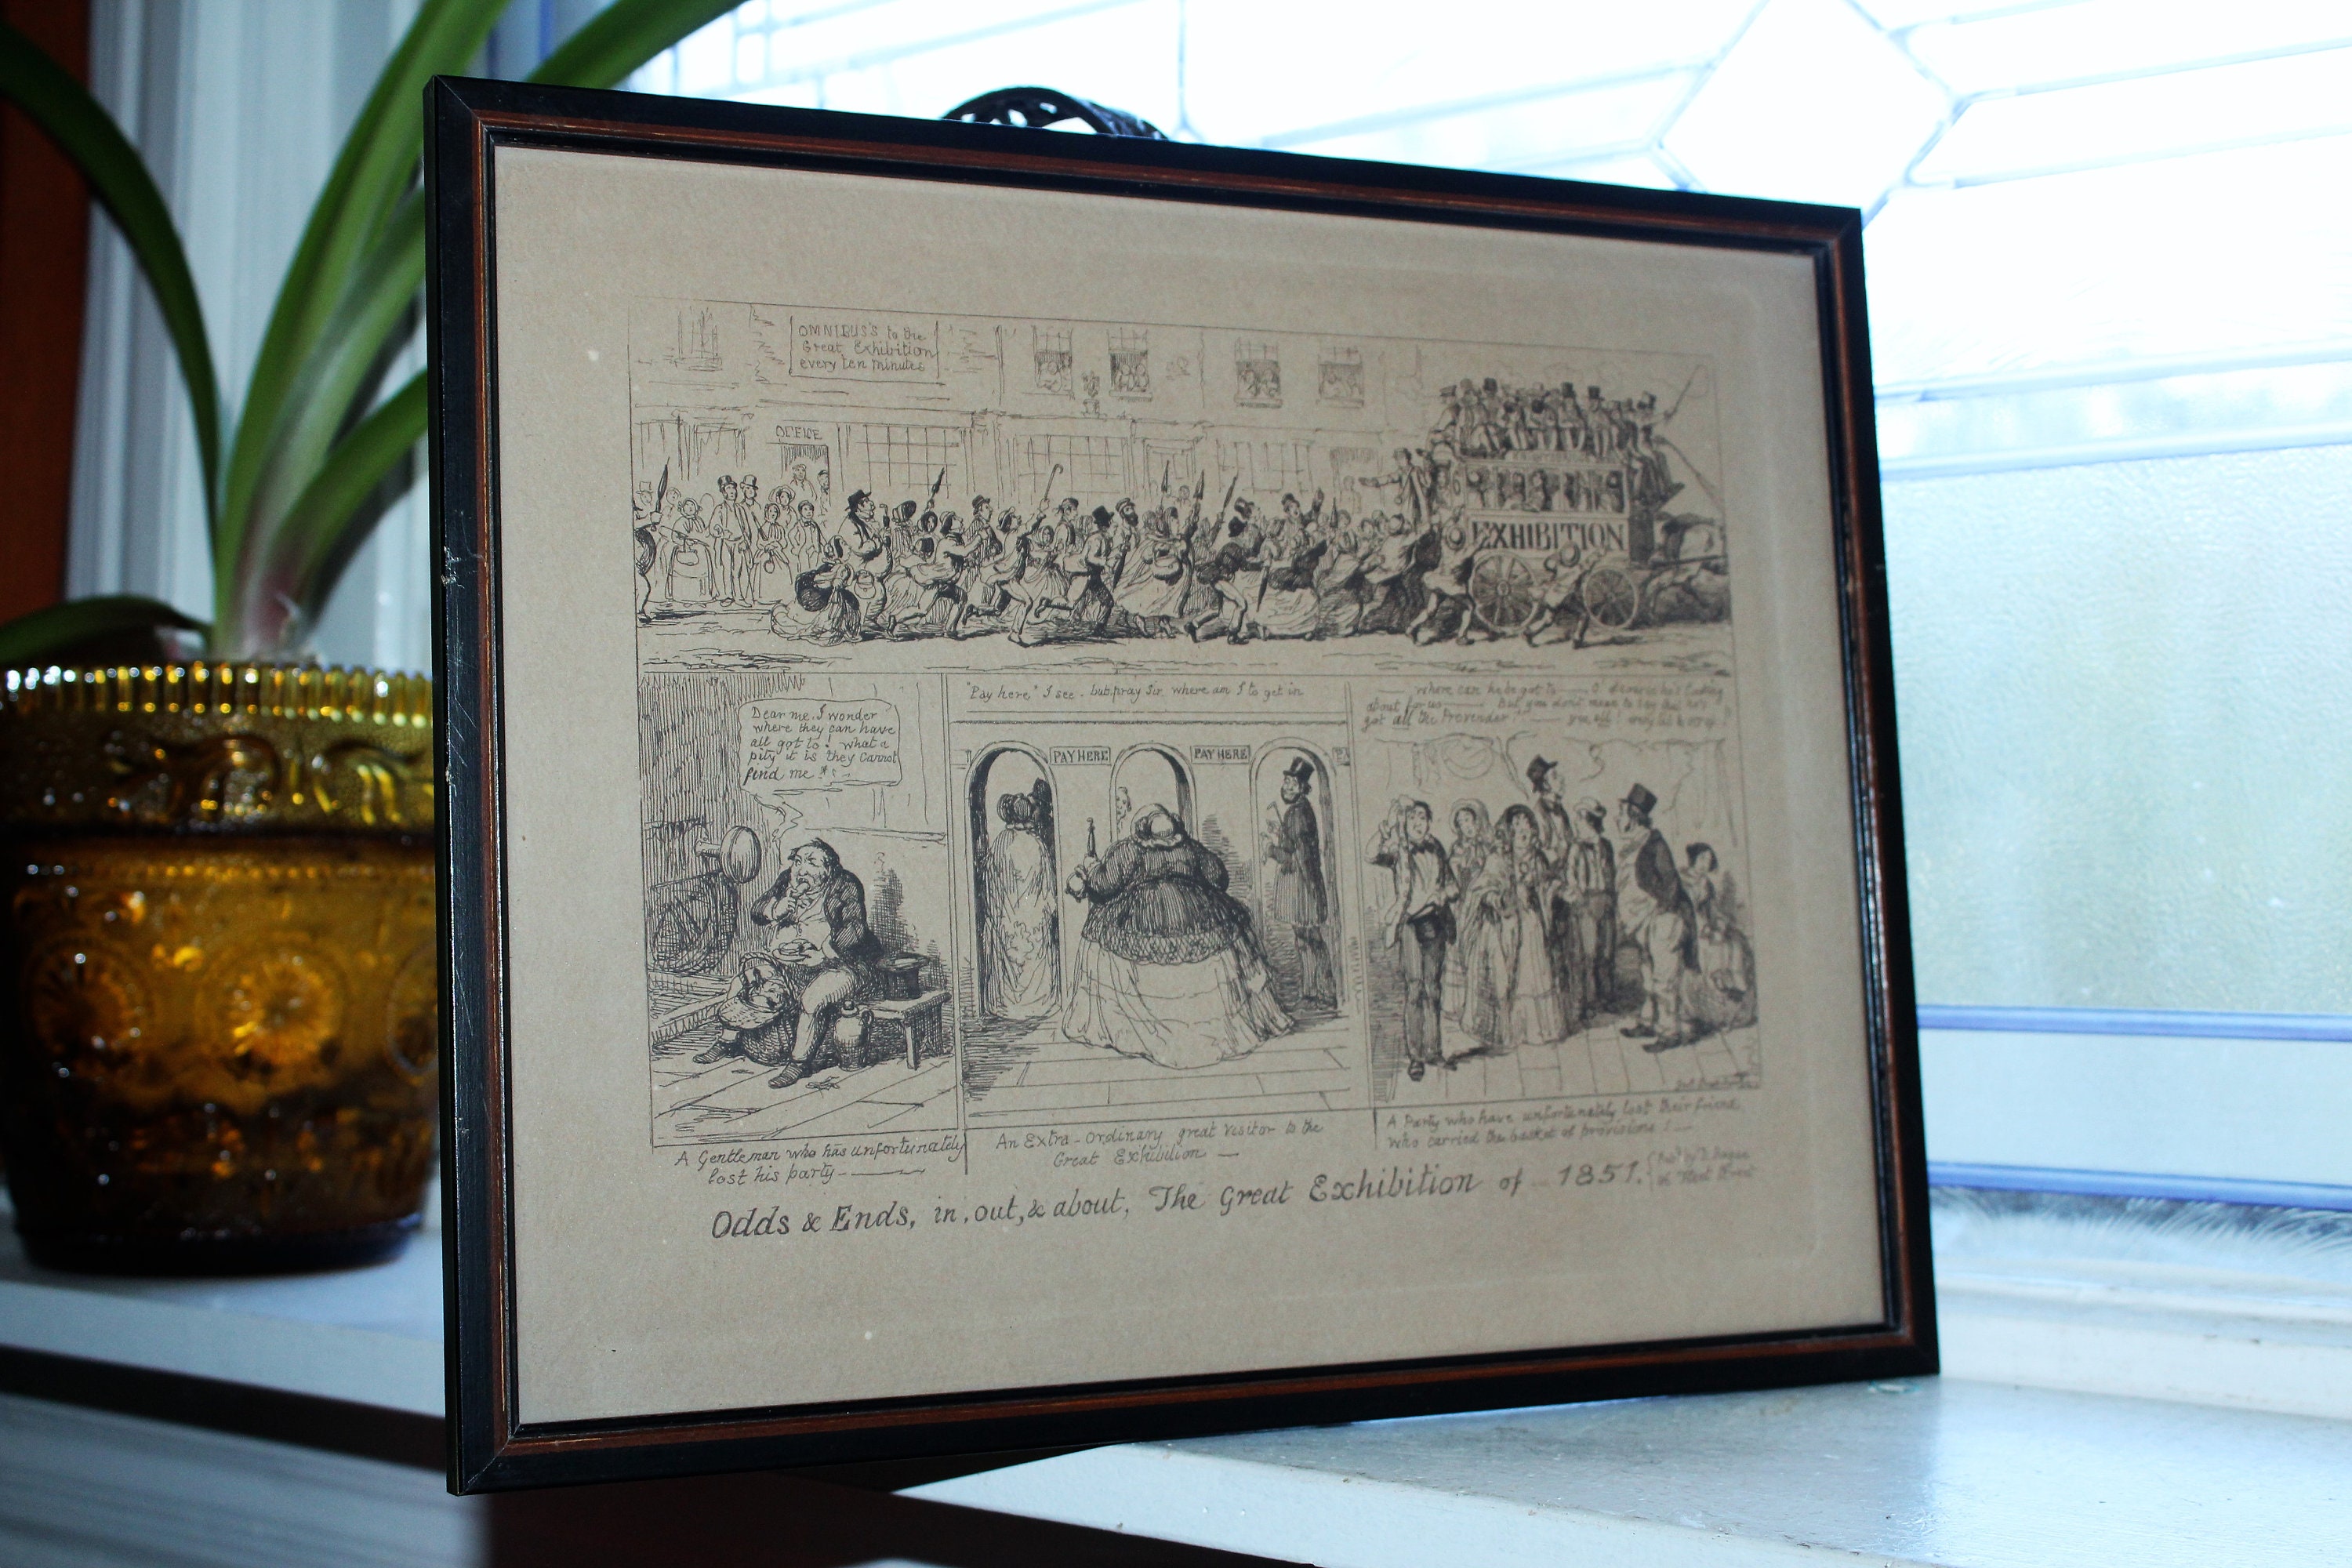 OMNIBUS'S to the
Great Exhibition
every ten minutes
OFFICE
EXHIBITION
Dear me. I wonder
where they can have
all got to! what a
pity it is they cannot
find me !!
"Pay here" I see - but pray Sir where am I to get in
PAY HERE
PAY HERE
PA
where can he be got to O'
about for us But you don't mean to say that he's
got all the Provender"
A Gentleman who has unfortunately
lost his party
An Extra-Ordinary great Visitor to the
Great Exhibition
A Party who have unfortunately lost their friend,
who carried the basket of provisions !
Odds & Ends, in, out, & about, The Great Exhibition of 1851.